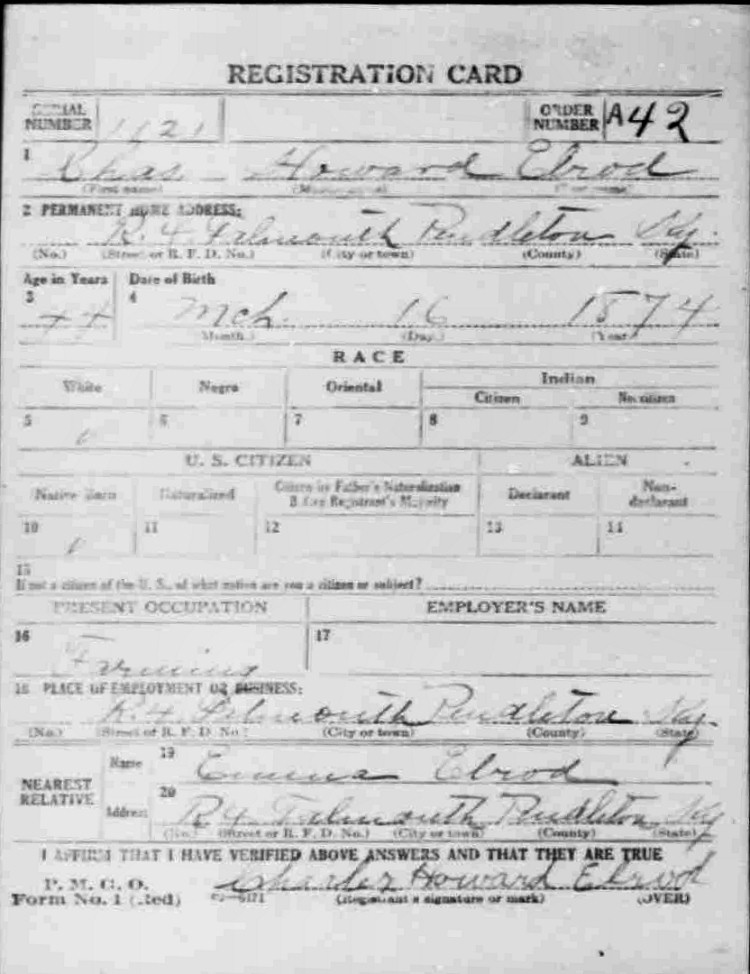 REGISTRATION CARD
SERIAL NUMBER 1121 ORDER NUMBER A42
1 Chas Howard Elrod
(First name) (Middle name) (Last name)
2 PERMANENT HOME ADDRESS:
R. 4. Falmouth Pendleton Ky.
(No.) (Street or R. F. D. No.) (City or town) (County) (State)
Age in Years Date of Birth
3 44 4 Mch. 16 1874
(Month.) (Day.) (Year.)
RACE
White Negro Oriental Indian
Citizen Noncitizen
5 6 7 8 9
U. S. CITIZEN ALIEN
Native Born Naturalized Citizen by Father's Naturalization Before Registrant's Majority Declarant Non-declarant
10 11 12 13 14
15
If not a citizen of the U. S., of what nation are you a citizen or subject?
PRESENT OCCUPATION EMPLOYER'S NAME
16 17
Farming
18 PLACE OF EMPLOYMENT OR BUSINESS:
R. 4. Falmouth Pendleton Ky.
(No.) (Street or R. F. D. No.) (City or town) (County) (State)
NEAREST RELATIVE Name 19 Emma Elrod
Address 20 R 4. Falmouth Pendleton Ky
(No.) (Street or R. F. D. No.) (City or town) (County) (State)
I AFFIRM THAT I HAVE VERIFIED ABOVE ANSWERS AND THAT THEY ARE TRUE
P. M. G. O.
Form No. 1 (Red) Charles Howard Elrod
(Registrant's signature or mark) (OVER)